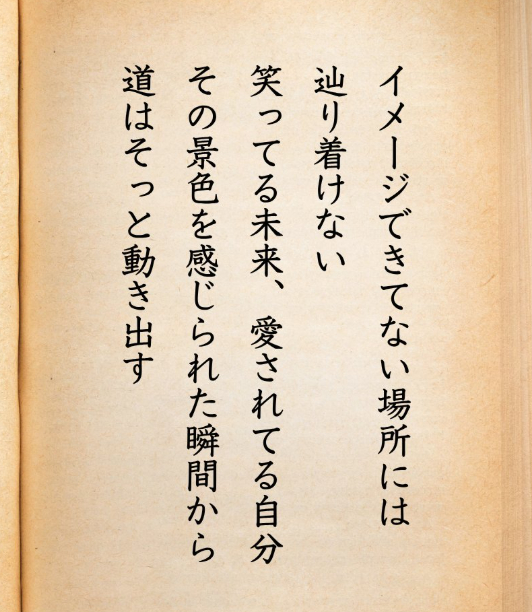 イメージできてない場所には
辿り着けない
笑ってる未来、愛されてる自分
その景色を感じられた瞬間から
道はそっと動き出す